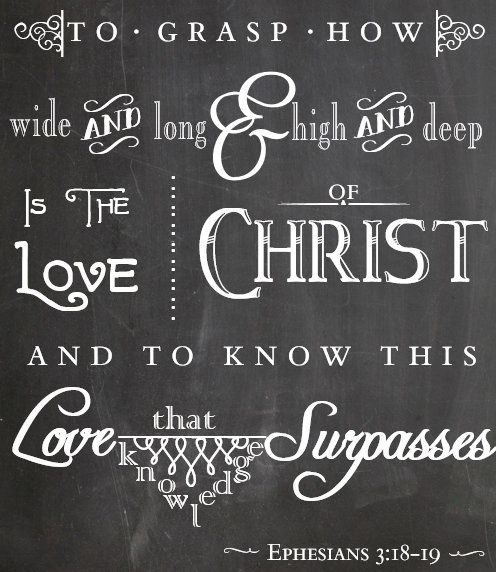 TO · GRASP · HOW
wide AND long & high AND deep
Is The Love
of Christ
AND TO KNOW THIS
Love that Surpasses
knowledge
Ephesians 3:18-19